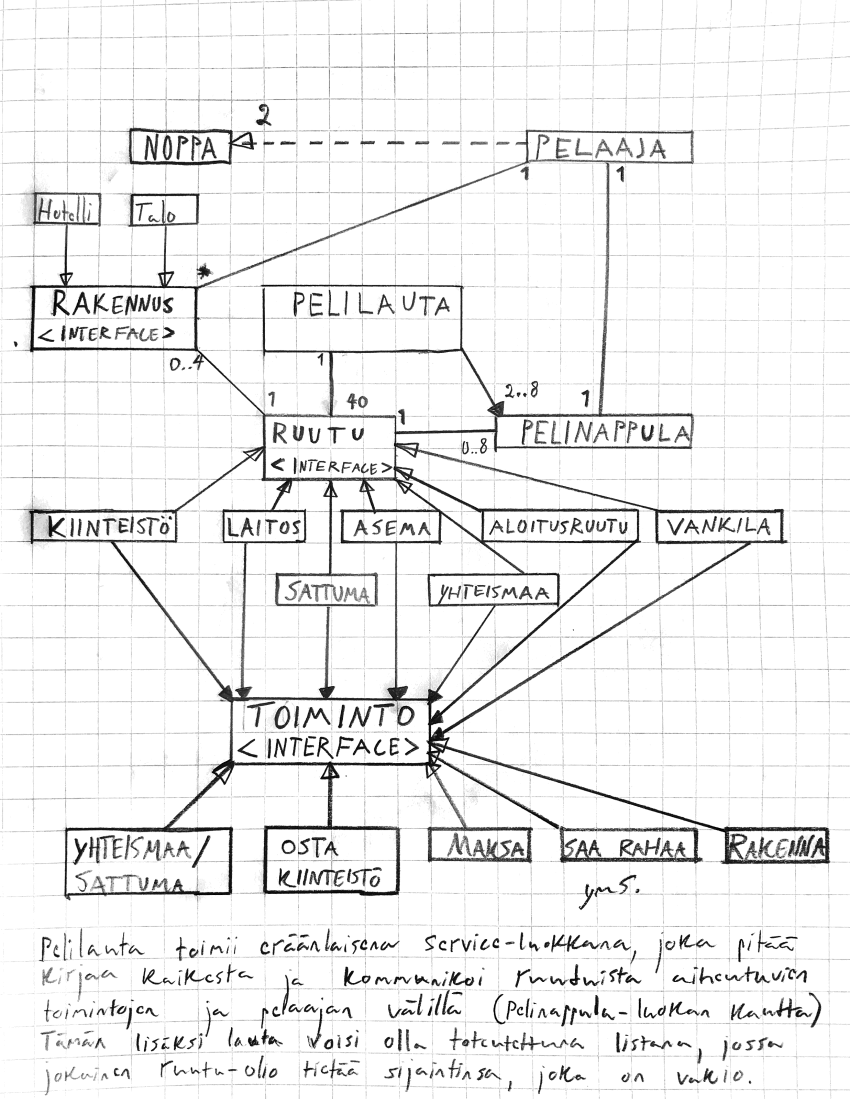 2
NOPPA
PELAAJA
1
1
Hotelli
Talo
*
RAKENNUS
<INTERFACE>
PELILAUTA
0..4
1
2..8
1
40
1
1
RUUTU
<INTERFACE>
0..8
PELINAPPULA
KIINTEISTÖ
LAITOS
ASEMA
ALOITUSRUUTU
VANKILA
SATTUMA
YHTEISMAA
TOIMINTO
<INTERFACE>
YHTEISMAA/
SATTUMA
OSTA
KIINTEISTÖ
MAKSA
SAA RAHAA
RAKENNA
yms.
Pelilauta toimii eräänlaisena service-luokkana, joka pitää
kirjaa kaikesta ja kommunikoi ruuduista aiheutuvien
toimintojen ja pelaajan välillä (Pelinappula-luokan kautta)
Tämän lisäksi lauta voisi olla toteutettuna listana, jossa
jokainen ruutu-olio tietää sijaintinsa, joka on vakio.